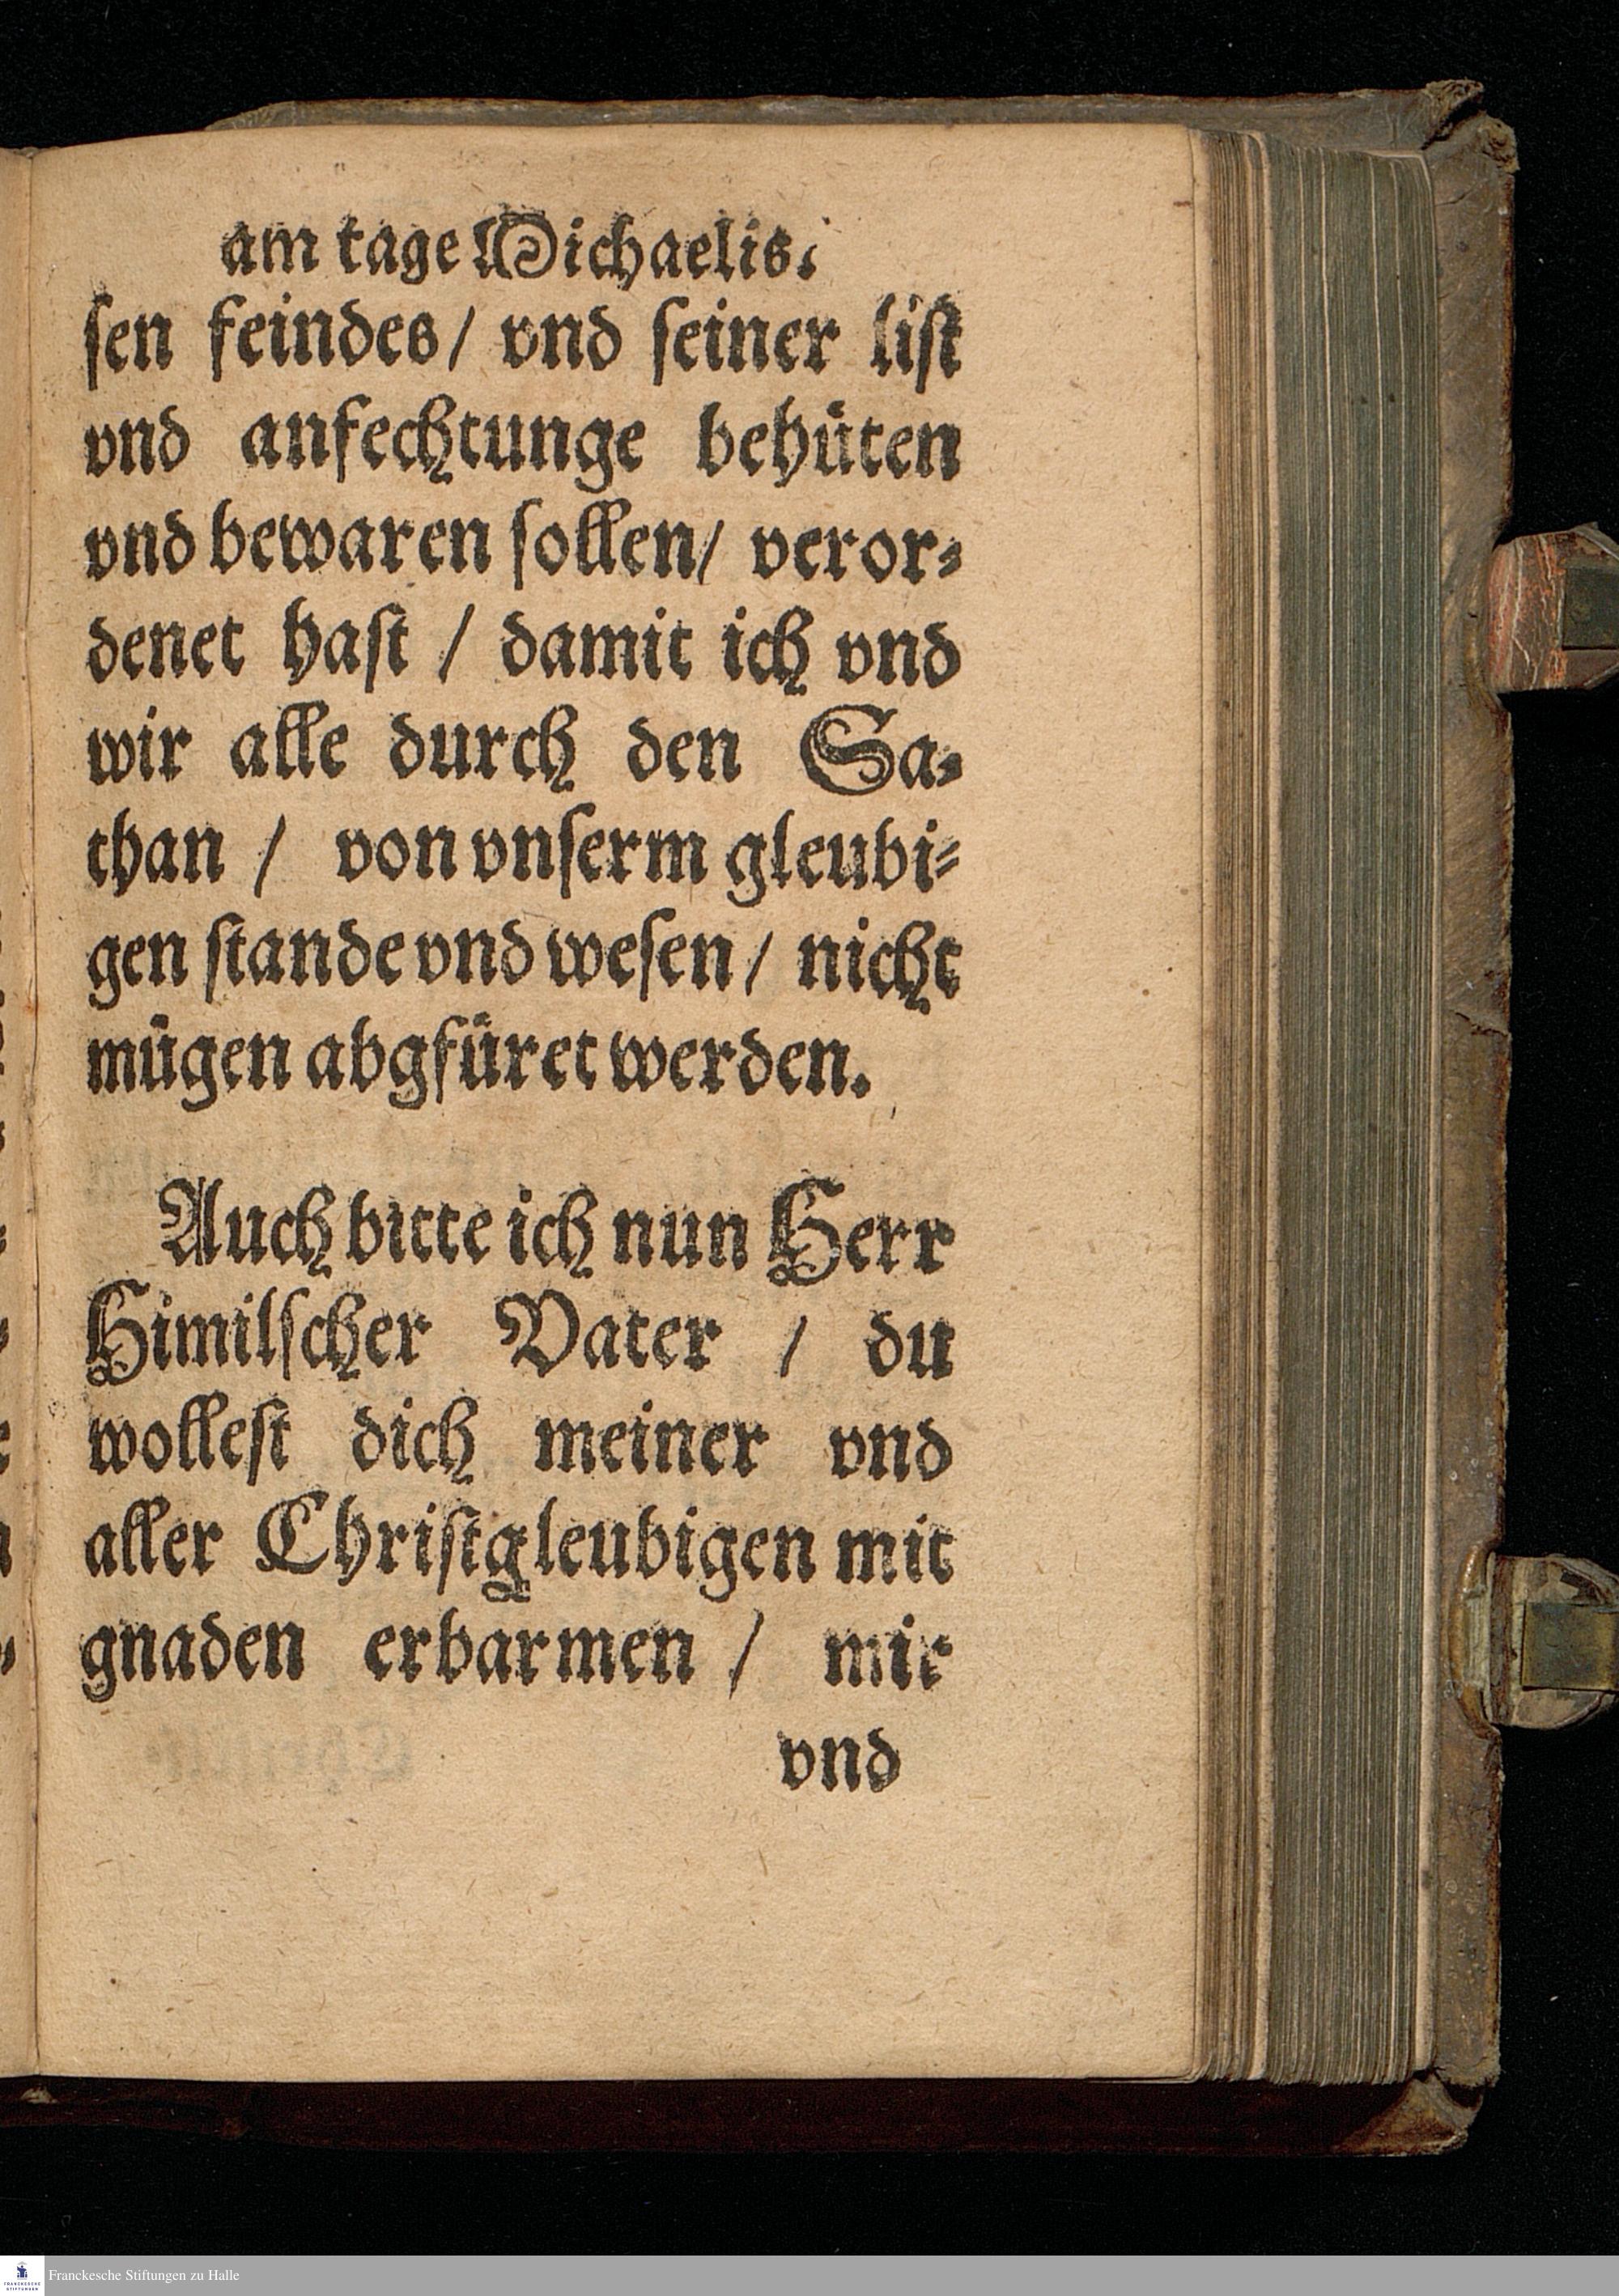 am tage Michaelis.
ſen feindes / vnd ſeiner liſt
vnd anfechtunge behüten
vnd bewaren ſollen / veror⸗
denet haſt / damit ich vnd
wir alle durch den Sa⸗
than / von vnſerm gleubi⸗
gen ſtande vnd weſen / nicht
mügen abgfüret werden.
Auch bitte ich nun Herr
Himilſcher Vater / du
wolleſt dich meiner vnd
aller Chriſtgleubigen mit
gnaden erbarmen / mir
vnd
Franckesche Stiftungen zu Halle